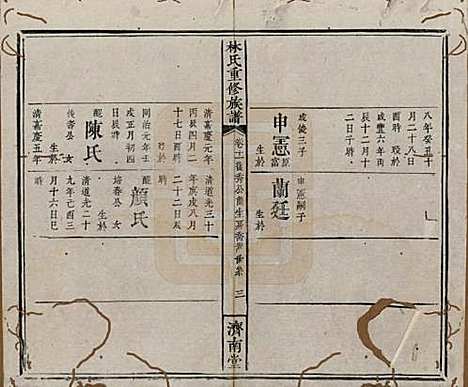 八年癸丑十
月二十八日
酉時 歿於
咸豐六年丙
辰十二月十
二日子時
成俊三子
申憲 原富 生於
申憲嗣子
蘭廷 生於
林氏重修族譜
三
濟南堂
清嘉慶元年
丙辰四月二
十七日申時
歿於
同治元年壬
戌正月初四
日辰時 配
陳氏
生於
清嘉慶五年
清道光三十
年庚戌八月
二十二日辰
時 配
顏氏
培春邑女 生於
清道光二十
九年己酉三
月十六日巳
時